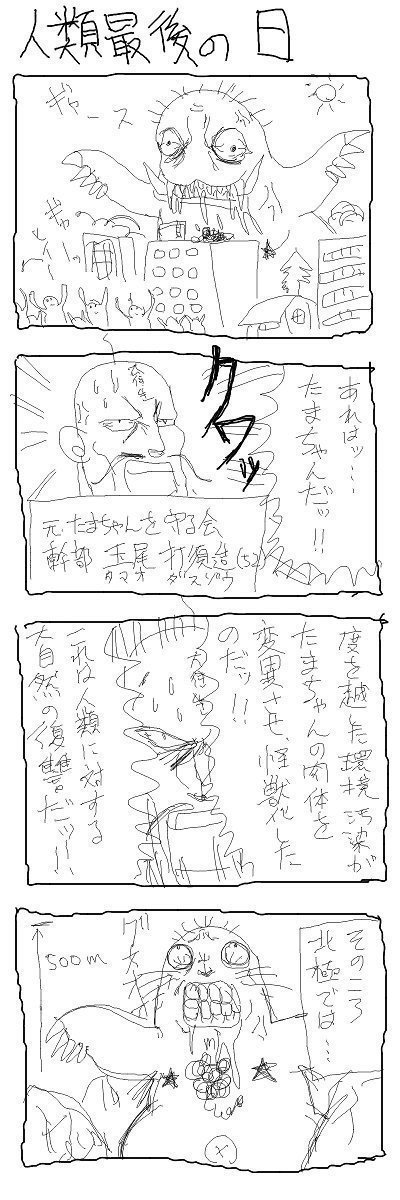 人類最後の日
ギャース
ギャー
あれはッ…
たまちゃんだッ!!
クワッ
元たまちゃんを守る会
幹部 玉尾 打須造(52)
タマオ ダスゾウ
度を越した環境汚染が
たまちゃんの肉体を
変異させ、怪獣化した
のだッ!!
これは人類に対する
大自然の復讐だッ!!
そのころ
北極では…
500m